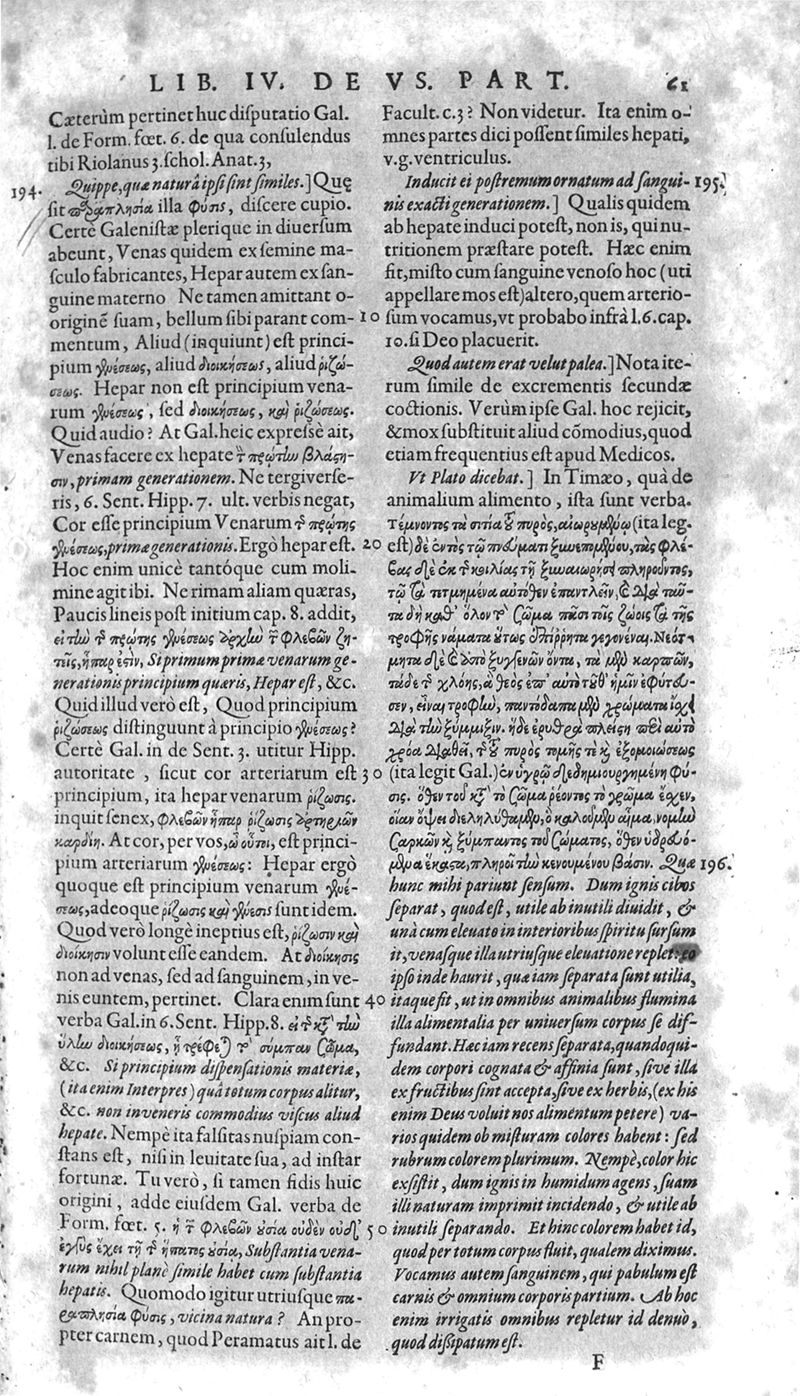 LIB. IV. DE VS. PART. 61
Cæterùm pertinet huc disputatio Gal.
l. de Form. fœt. 6. de qua consulendus
tibi Riolanus 3. schol. Anat. 3,
194. Quippe, quæ naturâ ipsi sint similes.] Quę
sit παραπλησία illa φύσις, discere cupio.
Certè Galenistæ plerique in diuersum
abeunt, Venas quidem ex semine ma-
sculo fabricantes, Hepar autem ex san-
guine materno Ne tamen amittant o-
originẽ suam, bellum sibi parant com-
mentum, Aliud (inquiunt) est princi-
pium γενέσεως, aliud διοικήσεως, aliud ῥιζώ-
σεως. Hepar non est principium vena-
rum γενέσεως, sed διοικήσεως, καὶ ῥιζώσεως.
Quid audio? At Gal. heic expressè ait,
Venas facere ex hepate τ πρώτην βλάςη-
σιν, primam generationem. Ne tergiverse-
ris, 6. Sent. Hipp. 7. ult. verbis negat,
Cor esse principium Venarum τ πρώτης
γενέσεως, primæ generationis. Ergò hepar est.
Hoc enim unicè tantóque cum moli-
mine agit ibi. Ne rimam aliam quæras,
Paucis lineis post initium cap. 8. addit,
εἰ τὴν τ πρώτης γενέσεως ἀρχὴν τ φλεβῶν ζη-
τεῖς, ἧπαρ ἐςὶν, Si primum primæ venarum ge-
nerationis principium quæris, Hepar est, &c.
Quid illud verò est, Quod principium
ῥιζώσεως distinguunt à principio γενέσεως?
Certè Gal. in de Sent. 3. utitur Hipp.
autoritate, sicut cor arteriarum est
principium, ita hepar venarum ῥίζωσις.
inquit senex, φλεβῶν ἧπαρ ῥίζωσις ἀρτηριῶν
καρδίη. At cor, per vos, ὦ οὗτοι, est princi-
pium arteriarum γενέσεως: Hepar ergò
quoque est principium venarum γενέ-
σεως, adeoque ῥίζωσις καὶ γένεσις sunt idem.
Quod verò longè ineptius est, ῥίζωσιν καὶ
διοίκησιν volunt esse eandem. At διοίκησις
non ad venas, sed ad sanguinem, in ve-
nis euntem, pertinet. Clara enim sunt
verba Gal. in 6. Sent. Hipp. 8. εἰ τ κατ τὴν
ὕλην διοικήσεως, ᾗ τρέφεται τ σύμπαν σῶμα,
&c. Si principium dispensationis materiæ,
(ita enim Interpres) quâ totum corpus alitur,
&c. non inveneris commodius viscus aliud
hepate. Nempè ita falsitas nuspiam con-
stans est, nisi in leuitate sua, ad instar
fortunæ. Tu verò, si tamen fidis huic
origini, adde eiusdem Gal. verba de
Form. fœt. 5. ἡ τ φλεβῶν οὐσία οὐδὲν οὐδ'
ἐγγὺς ἔχει τῇ τ ἥπατος οὐσίᾳ, Substantia vena-
rum nihil planè simile habet cum substantia
hepatis. Quomodo igitur utriusque πα-
ραπλησία φύσις, vicina natura? An pro-
pter carnem, quod Peramatus ait l. de
Facult. c. 3? Non videtur. Ita enim o-
mnes partes dici possent similes hepati,
v.g. ventriculus.
Inducit ei postremum ornatum ad sangui- 195.
nis exacti generationem.] Qualis quidem
ab hepate induci potest, non is, qui nu-
tritionem præstare potest. Hæc enim
fit, misto cum sanguine venoso hoc (uti
appellare mos est) altero, quem arterio-
10 sum vocamus, vt probabo infrà l. 6. cap.
10. si Deo placuerit.
Quod autem erat velut palea.] Nota ite-
rum simile de excrementis secundæ
coctionis. Verùm ipse Gal. hoc rejicit,
& mox substituit aliud cõmodius, quod
etiam frequentius est apud Medicos.
Vt Plato dicebat.] In Timæo, quà de
animalium alimento, ista sunt verba.
Τέμνοντος τὰ σιτία τοῦ πυρὸς, αἰωρουμένῳ (ita leg.
20 est) δὲ ἐντὸς τῷ πνεύματι ξυνεπομένου, τὰς φλέ-
βας δὲ ἐκ τ κοιλίας τῇ ξυναιωρήσῃ πληροῦντος,
τῷ τὰ τετμημένα αὐτόθεν ἐπαντλεῖν, καὶ διὰ ταῦ-
τα δὴ καθ' ὅλον τ σῶμα πᾶσι τοῖς ζώοις τὰ τῆς
τροφῆς νάματα οὕτως ἐπίρρητα γεγονέναι. Νεότ-
μητα δὲ καὶ ἀπὸ ξυγγενῶν ὄντα, τὰ μὲν καρπῶν,
τὰ δὲ τ χλόης, ἃ θεὸς ἐπ' αὐτὸ τοῦθ' ἡμῖν ἐφύτευ-
σεν, εἶναι τροφὴν, παντοδαπὰ μὲν χρώματα ἴσχει
διὰ τὴν ξύμμιξιν. ἡ δὲ ἐρυθρὰ πλείςη περὶ αὐτὸ
χρόα διαθεῖ, τ τοῦ πυρὸς τομῆς τε καὶ ἐξομοιώσεως
30 (ita legit Gal.) ἐν ὑγρῷ δεδημιουργημένη φύ-
σις. ὅθεν τοῦ κατ τὸ σῶμα ῥέοντος τὸ χρῶμα ἔσχεν,
οἵαν ὄψει διεληλύθαμεν, ὃ καλοῦμεν αἷμα, νομὴν
σαρκῶν καὶ ξύμπαντος τοῦ σώματος, ὅθεν ὑδρευό-
μενα ἕκαςα, πληροῖ τὴν κενουμένου βάσιν. Quæ 196.
hunc mihi pariunt sensum. Dum ignis cibos
separat, quod est, utile ab inutili diuidit, &
unà cum eleuato in interioribus spiritu sursum
it, venasque illa utriusque eleuatione replet: eo
ipso inde haurit, quæ iam separata sunt utilia,
40 itaque fit, ut in omnibus animalibus flumina
illa alimentalia per uniuersum corpus se dif-
fundant. Hæc iam recens separata, quandoqui-
dem corpori cognata & affinia sunt, sive illa
ex fructibus sint accepta, sive ex herbis, (ex his
enim Deus voluit nos alimentum petere) va-
rios quidem ob misturam colores habent: sed
rubrum colorem plurimum. Nempè, color hic
exsistit, dum ignis in humidum agens, suam
illi naturam imprimit incidendo, & utile ab
50 inutili separando. Et hinc colorem habet id,
quod per totum corpus fluit, qualem diximus.
Vocamus autem sanguinem, qui pabulum est
carnis & omnium corporis partium. Ab hoc
enim irrigatis omnibus repletur id denuò,
quod dissipatum est.
F